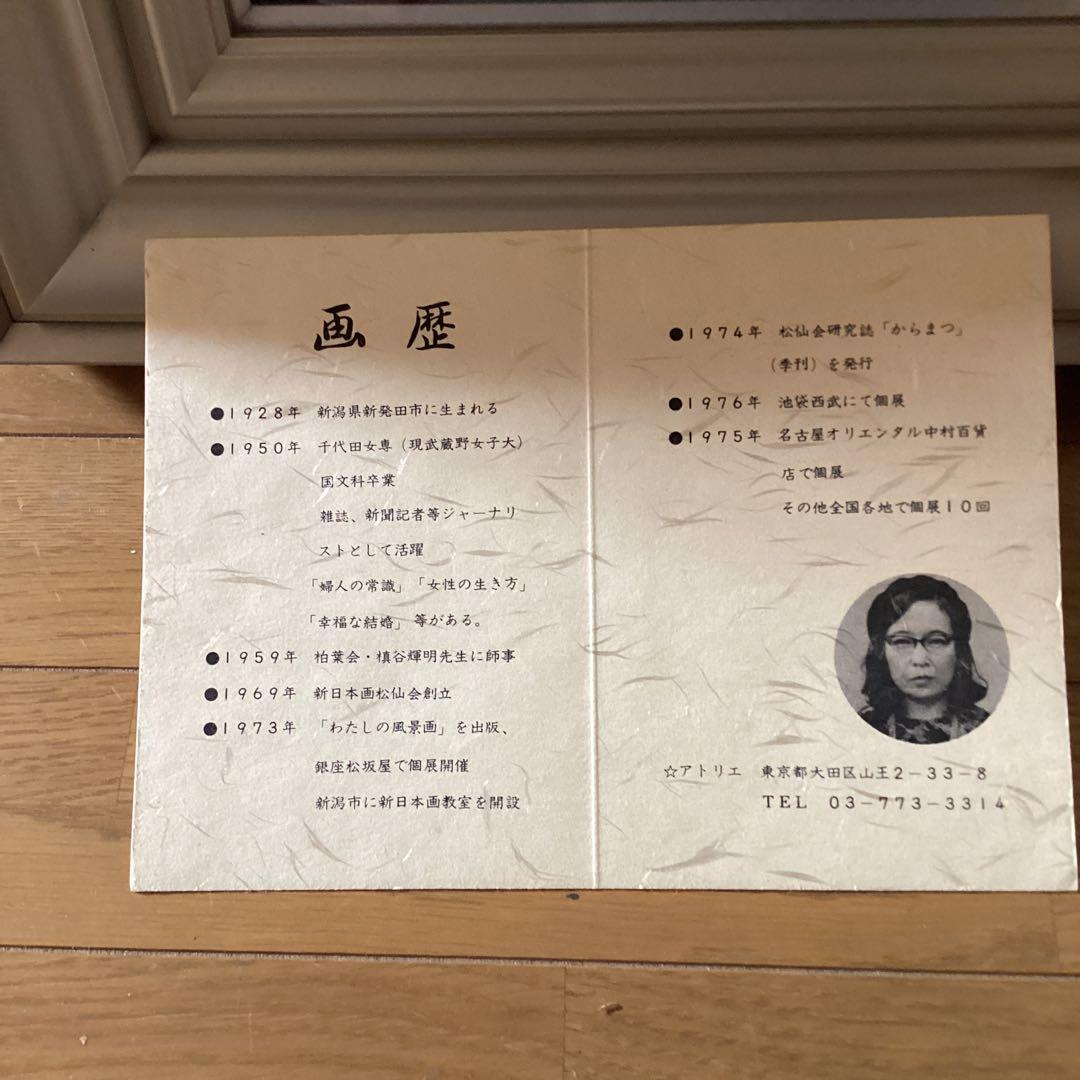 画歴
●1928年 新潟県新発田市に生まれる
●1950年 千代田女専(現武蔵野女子大)
国文科卒業
雑誌、新聞記者等ジャーナリ
ストとして活躍
「婦人の常識」「女性の生き方」
「幸福な結婚」等がある。
●1959年 柏葉会・槙谷輝明先生に師事
●1969年 新日本画松仙会創立
●1973年 「わたしの風景画」を出版、
銀座松坂屋で個展開催
新潟市に新日本画教室を開設
●1974年 松仙会研究誌「からまつ」
(季刊)を発行
●1976年 池袋西武にて個展
●1975年 名古屋オリエンタル中村百貨
店で個展
その他全国各地で個展10回
☆アトリエ 東京都大田区山王2-33-8
TEL 03-773-3314